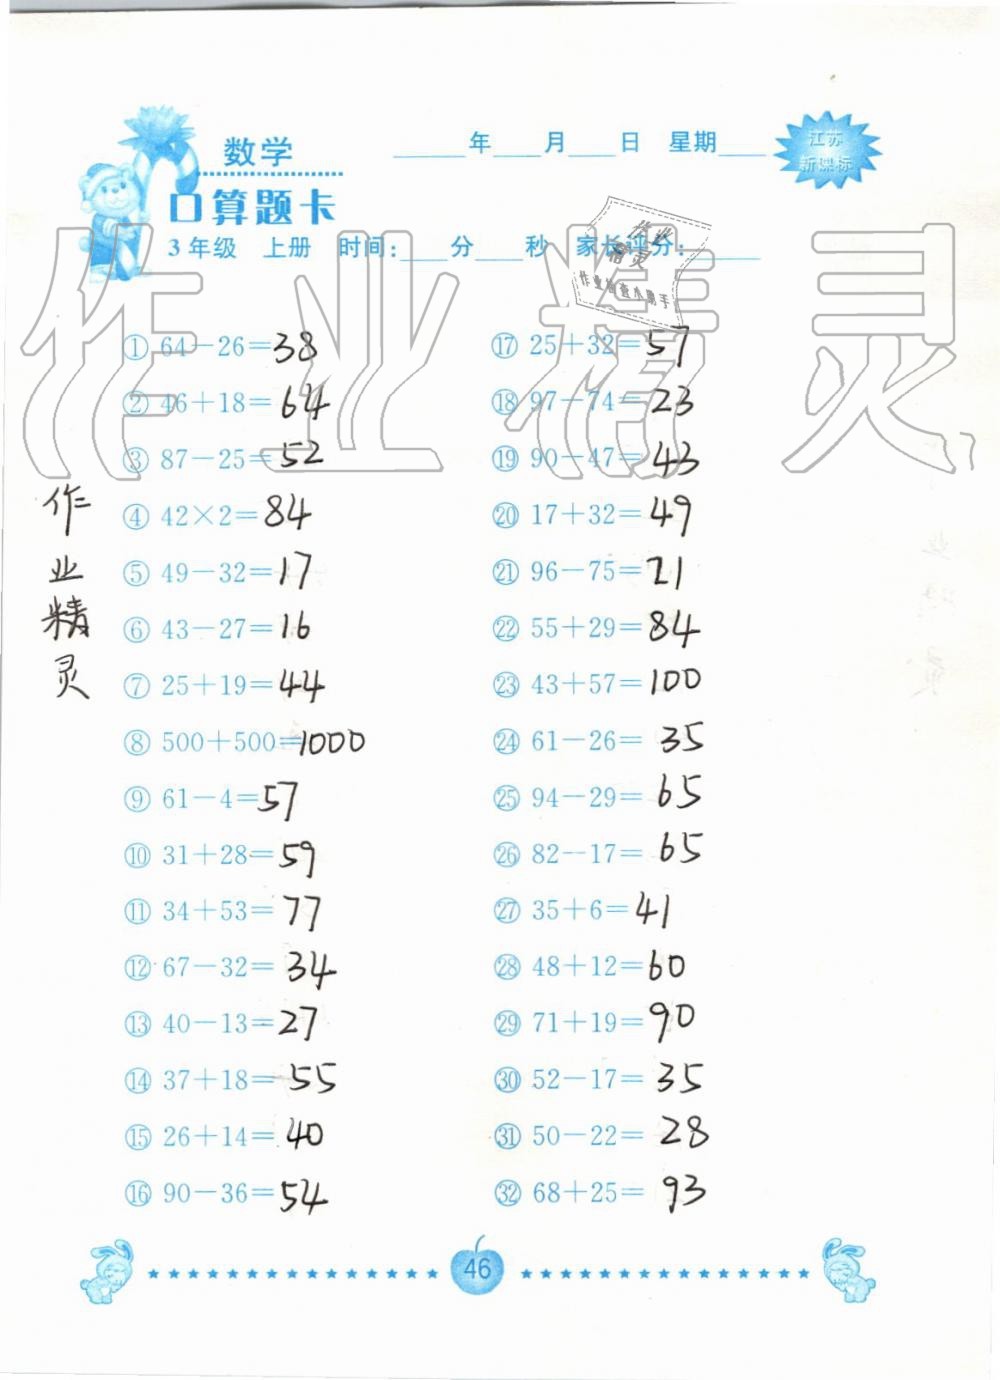 数学
____年____月____日 星期____
江苏
新课标
口算题卡
3年级 上册 时间:____分____秒 家长评分:____
作业精灵
作业
精灵
作业检查小助手
① 64－26=38
② 46＋18=64
③ 87－25=52
④ 42×2=84
⑤ 49－32=17
⑥ 43－27=16
⑦ 25＋19=44
⑧ 500＋500=1000
⑨ 61－4=57
⑩ 31＋28=59
⑪ 34＋53=77
⑫ 67－32=34
⑬ 40－13=27
⑭ 37＋18=55
⑮ 26＋14=40
⑯ 90－36=54
⑰ 25＋32=57
⑱ 97－74=23
⑲ 90－47=43
⑳ 17＋32=49
㉑ 96－75=21
㉒ 55＋29=84
㉓ 43＋57=100
㉔ 61－26=35
㉕ 94－29=65
㉖ 82－17=65
㉗ 35＋6=41
㉘ 48＋12=60
㉙ 71＋19=90
㉚ 52－17=35
㉛ 50－22=28
㉜ 68＋25=93
作
业
精
灵
46